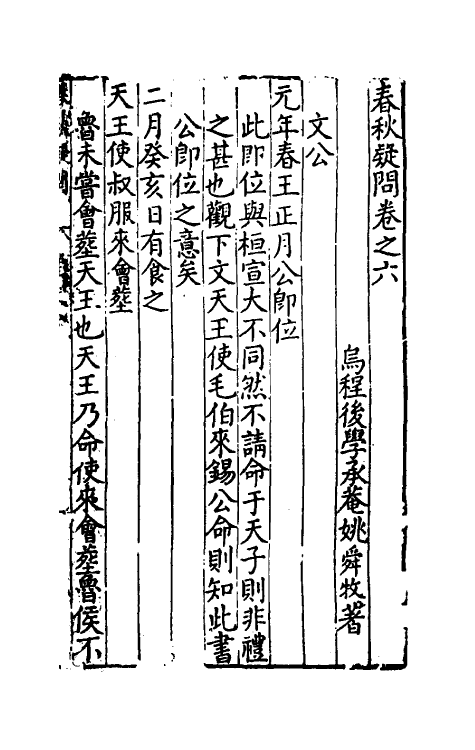 春秋疑問卷之六
烏程後學承菴姚舜牧著
文公
元年春王正月公卽位
此卽位與桓宣大不同然不請命于天子則非禮
之甚也觀下文天王使毛伯來錫公命則知此書
公卽位之意矣
二月癸亥日有食之
天王使叔服來會塟
魯未嘗會塟天王也天王乃命使來會塟魯侯不